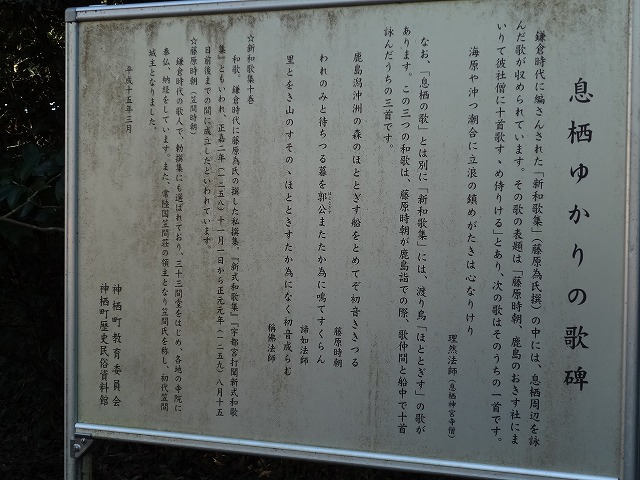 息栖ゆかりの歌碑
鎌倉時代に編さんされた「新和歌集」(藤原為氏撰)の中には、息栖周辺を詠
んだ歌が収められています。その歌の表題は「藤原時朝、鹿島のおきす社にま
いりて彼社僧に十首歌すゝめ侍りける」とあり、次の歌はそのうちの一首です。
海原や沖つ潮合に立浪の鎮めがたきは心なりけり
理然法師(息栖神宮寺僧)
なお、「息栖の歌」とは別に「新和歌集」には、渡り鳥「ほととぎす」の歌が
あります。この三つの和歌は、藤原時朝が鹿島詣での際、歌仲間と船中で十首
詠んだうちの三首です。
鹿島潟沖洲の森のほととぎす船をとめてぞ初音ききつる
藤原時朝
われのみと待ちつる暮を郭公またたか為に鳴てすくらん
諦如法師
里とをき山のすそのゝほととぎすたか為になく初音成らむ
稱佛法師
☆新和歌集十巻
和歌、鎌倉時代に藤原為氏の撰した私撰集、『新式和歌集』『宇都宮打聞新式和歌
集』ともいわれ、正嘉二年(一二五八)十一月一日から正元元年(一二五九)八月十五
日前後までの間に成立したといわれています。
☆藤原時朝(笠間時朝)
鎌倉時代の歌人で、勅撰集にも選ばれており、三十三間堂をはじめ、各地の寺院に
奉仏、納経をしています。また、常陸国笠間荘の領主となり笠間氏を称し、初代笠間
城主となりました。
平成十五年三月
神栖町教育委員会
神栖町歴史民俗資料館